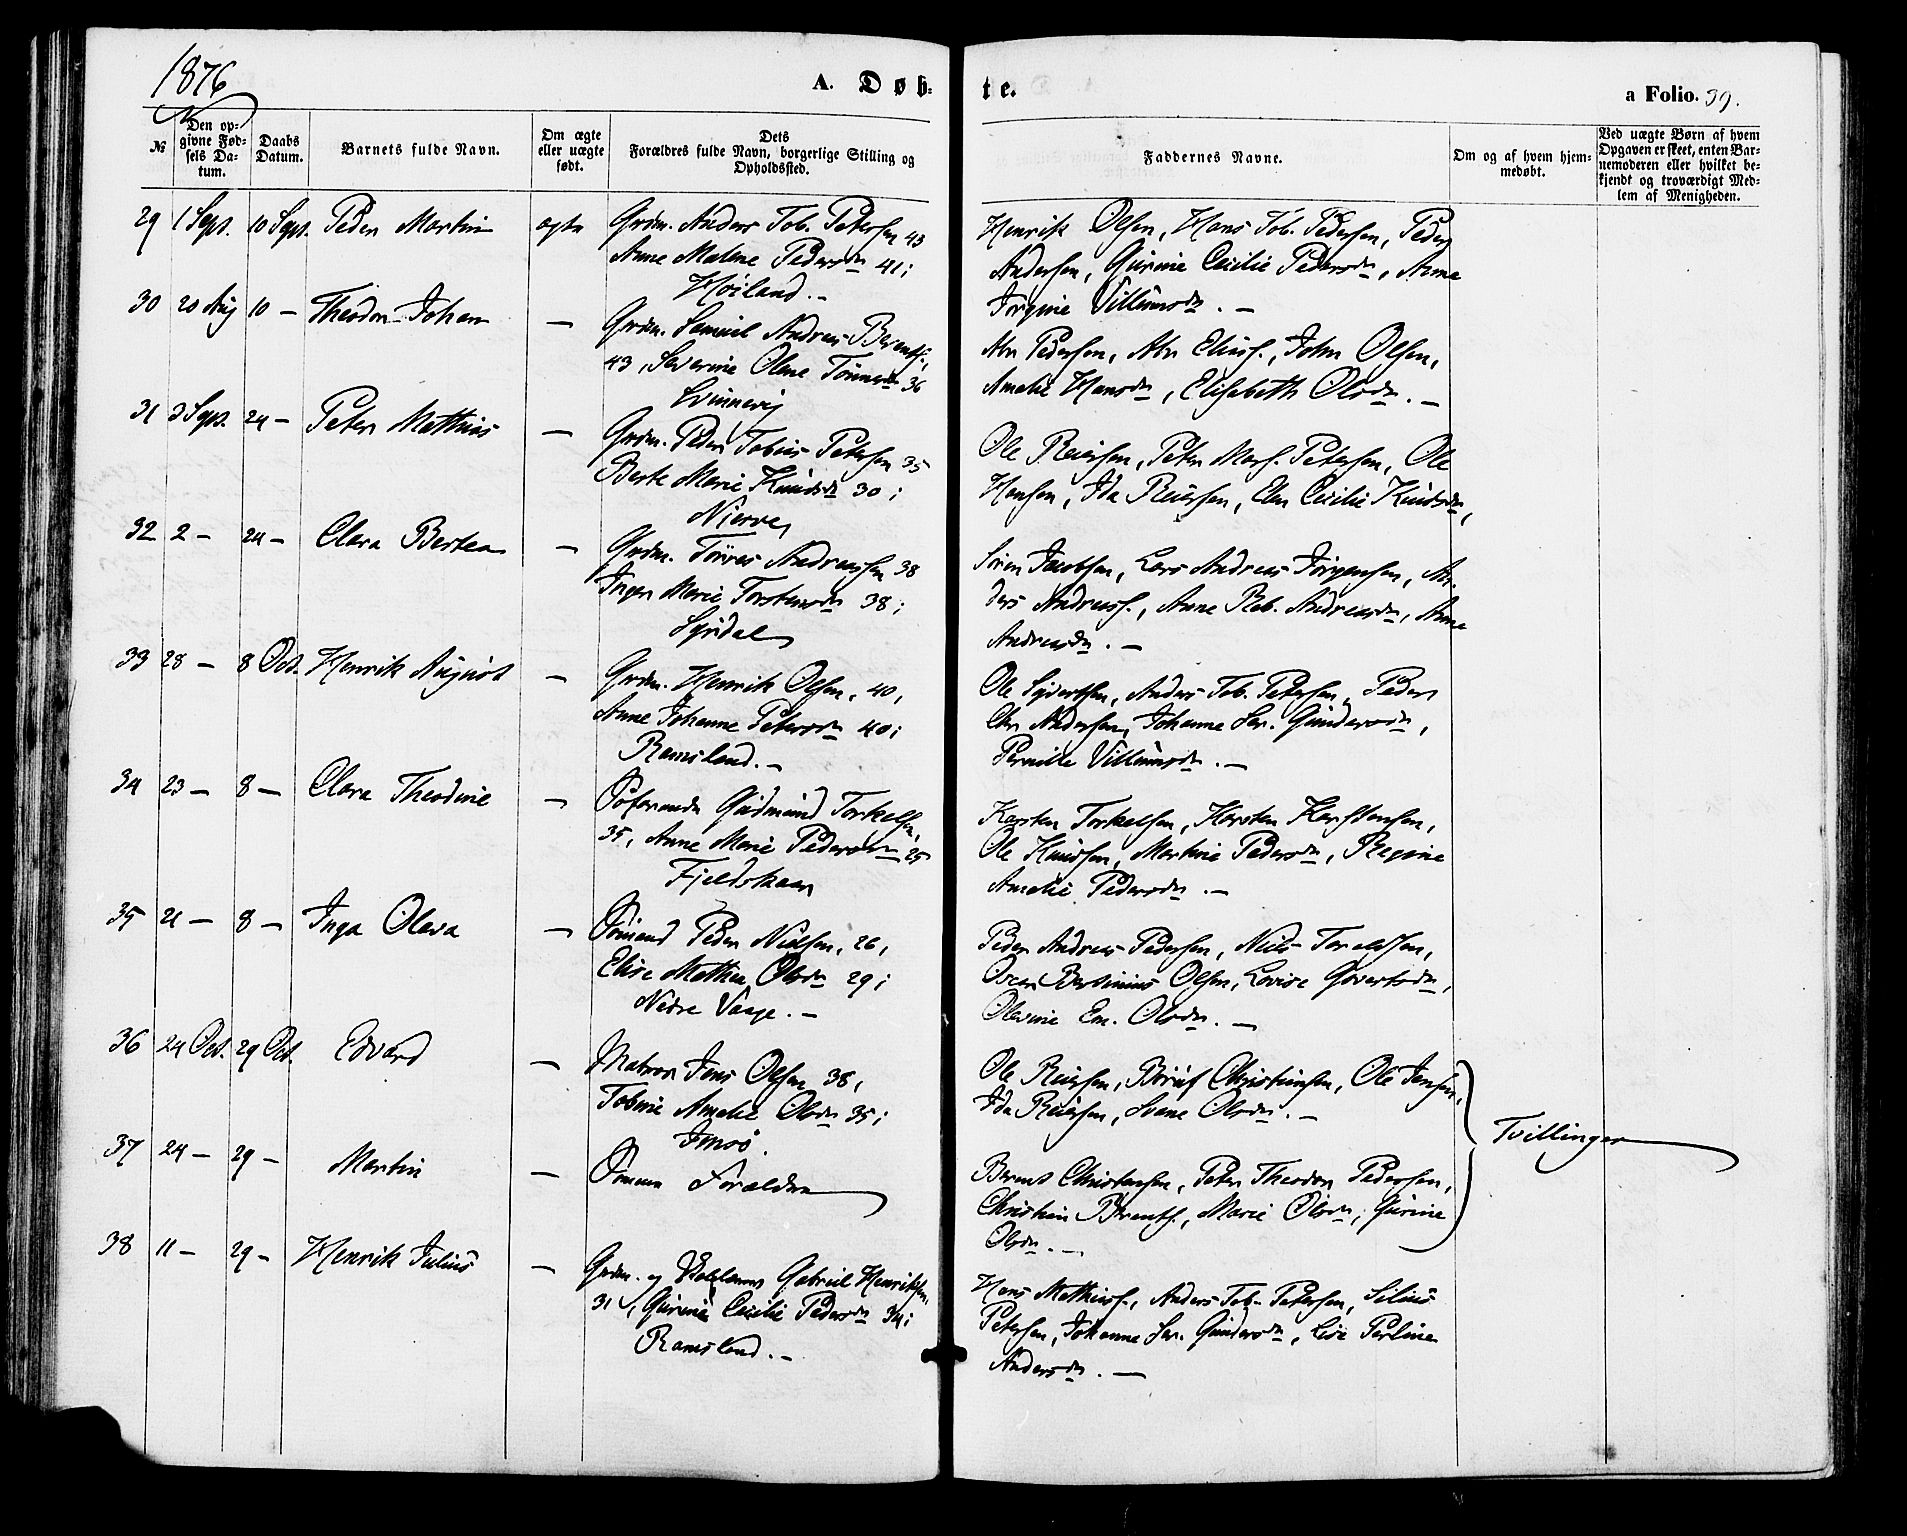 1876
A. Døb-
te.
a Folio. 39.
№
Den op-
givne Fød-
sels Da-
tum.
Daabs
Datum.
Barnets fulde Navn.
Om ægte
eller uægte
født.
Dets
Forældres fulde Navn, borgerlige Stilling og
Opholdssted.
Faddernes Navne.
Om og af hvem hjem-
medøbt.
Ved uægte Børn af hvem
Opgaven er skeet, enten Bar-
nemoderen eller hvilket be-
kjendt og troværdigt Med-
lem af Menigheden.
29 1 Sept. 10 Sept. Peder Martin ægte Grdm. Anders Tob. Petersen 43
Anne Malene Pedersdr 41;
Høiland. -
Henrik Olsen, Hans Tob. Pedersen, Peder
Andersen, Gurine Cecilie Pedersdr, Anne
Jørgine Villumsdr. -
30 20 Aug 10 - Theodor Johan - Grdm. Samuel Andreas Berents.,
43, Severine Olene Tønnesdr 36
Svinnevig
Abr Pedersen, Abr Elias., John Olsen,
Amalie Hansdr, Elisabeth Olsdr. -
31 3 Sept. 24 - Peter Mathias - Grdm. Peder Tobias Petersen 35
Berte Marie Knudsdr 30;
Njerve
Ole Reiersen, Peter Mars. Petersen, Ole
Hansen, Ida Reiersen, Elen Cecilie Knudsdr,
32 2 - 24 - Clara Bertea - Grdm. Tørres Andreassen 38
Inger Marie Torstensdr 38;
Syrdal
Sören Jacobsen, Lars Andreas Jørgensen, An-
ders Andreass., Anne Reb. Andreasdr, Anne
Andreasdr. -
33 28 - 8 Oct. Henrik August - Grdm. Henrik Olsen, 40,
Anne Johanne Petersdr 40;
Ramsland. -
Ole Sjvertsen, Anders Tob. Petersen, Peder
Chr Andersen, Johanne Ser. Gundersdr,
Pernille Villumsdr. -
34 23 - 8 - Clara Theodine - Søfarende Gudmund Torkelsen,
35, Anne Marie Pedersdr 25
Fjeldskaar
Karsten Torkelsen, Karsten Karstensen,
Ole Knudsen, Martine Pedersdr, Regine
Amalie Pedersdr. -
35 21 - 8 - Inga Olava - Sømand Peder Nielsen, 26,
Elise Mathea Olsdr 29;
Nedre Vaage. -
Peder Andreas Pedersen, Niels Toraldsen,
Oscar Bertinius Olsen, Lovise Govertsdr,
Olevine Em. Olsdr. -
36 24 Oct. 29 Oct. Edvard - Matros Jens Olsen 38,
Tobine Amalie Olsdr 35;
Imsø.
Ole Reiersen, Børuf Christensen, Ole Jensen,
Ida Reiersen, Svane Olsdr. -
Tvillinger
37 24 - 29 - Martin - Samme Forældre
Berent Christensen, Peter Theodor Pedersen,
Christian Berents., Marie Olsdr, Gurine
Olsdr. -
38 11 - 29 - Henrik Julius - Grdm. og Gabriel Henriksen,
31, Gurine Cecilie Pedersdr 34;
Ramsland. -
Hans Mathias., Anders Tob. Petersen, Silius
Petersen, Johanne Ser. Gundersdr, Lise Perline
Andersdr. -